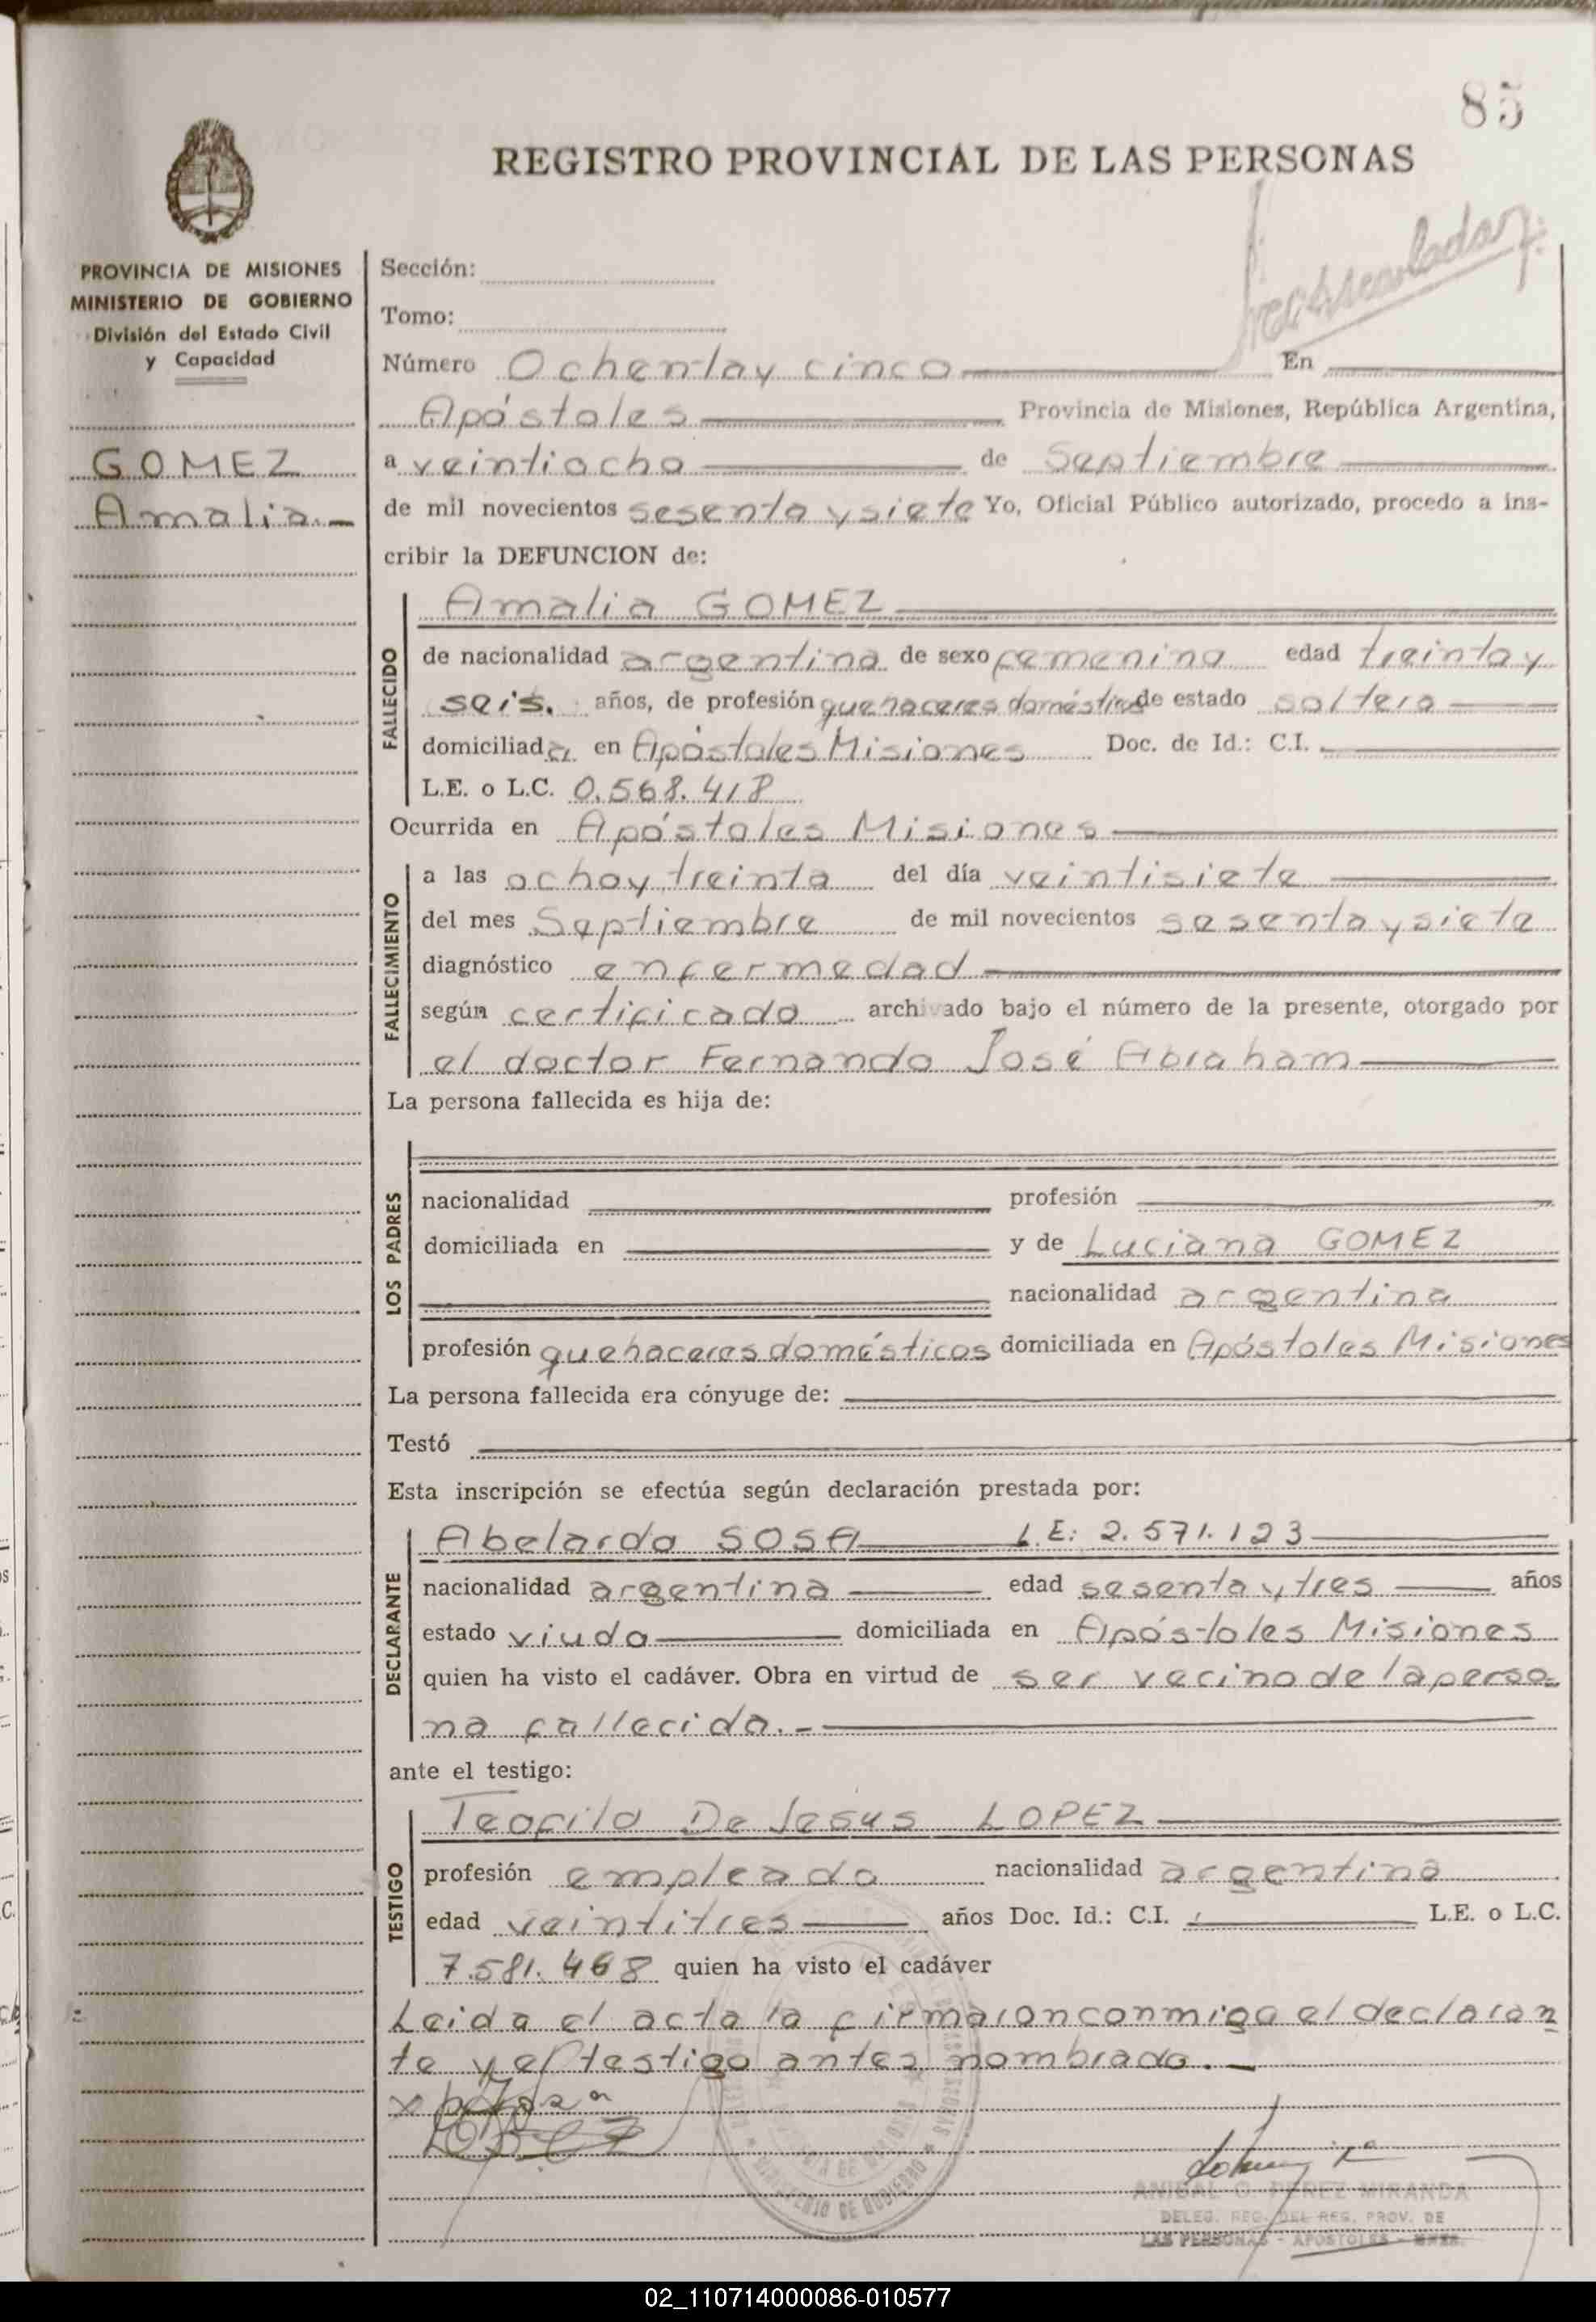 85
REGISTRO PROVINCIAL DE LAS PERSONAS
PROVINCIA DE MISIONES
MINISTERIO DE GOBIERNO
División del Estado Civil
y Capacidad
GOMEZ
Amalia.-
Sección:
Tomo:
Número Ochentay cinco En
Apóstoles Provincia de Misiones, República Argentina,
a veintiocho de Septiembre
de mil novecientos sesenta y siete Yo, Oficial Público autorizado, procedo a ins-
cribir la DEFUNCION de:
FALLECIDO
Amalia GOMEZ
de nacionalidad argentina de sexo femenino edad treinta y
seis. años, de profesión quehaceres domésticos de estado soltera
domiciliada en Apóstoles Misiones Doc. de Id.: C.I.
L.E. o L.C. 0.568.418
Ocurrida en Apóstoles Misiones
FALLECIMIENTO
a las ocho y treinta del día veintisiete
del mes Septiembre de mil novecientos sesenta y siete
diagnóstico enfermedad
según certificado archivado bajo el número de la presente, otorgado por
el doctor Fernando José Abraham
La persona fallecida es hija de:
LOS PADRES
nacionalidad profesión
domiciliada en y de Luciana GOMEZ
nacionalidad argentina
profesión quehaceres domésticos domiciliada en Apóstoles Misiones
La persona fallecida era cónyuge de:
Testó
Esta inscripción se efectúa según declaración prestada por:
DECLARANTE
Abelardo SOSA L.E: 2.571.123
nacionalidad argentina edad sesenta y tres años
estado viudo domiciliada en Apóstoles Misiones
quien ha visto el cadáver. Obra en virtud de ser vecino de la perso-
na fallecida.-
ante el testigo:
TESTIGO
Teofilo De Jesus LOPEZ
profesión empleado nacionalidad argentina
edad veintitres años Doc. Id.: C.I. L.E. o L.C.
7.581.468 quien ha visto el cadáver
Leida el acta la firmaron conmigo el declaran
te y el testigo antes nombrado.-
ANIBAL O. PEREZ MIRANDA
DELEG. REG. DEL REG. PROV. DE
LAS PERSONAS - APOSTOLES - MNES.
MINISTERIO DE GOBIERNO
02_110714000086-010577